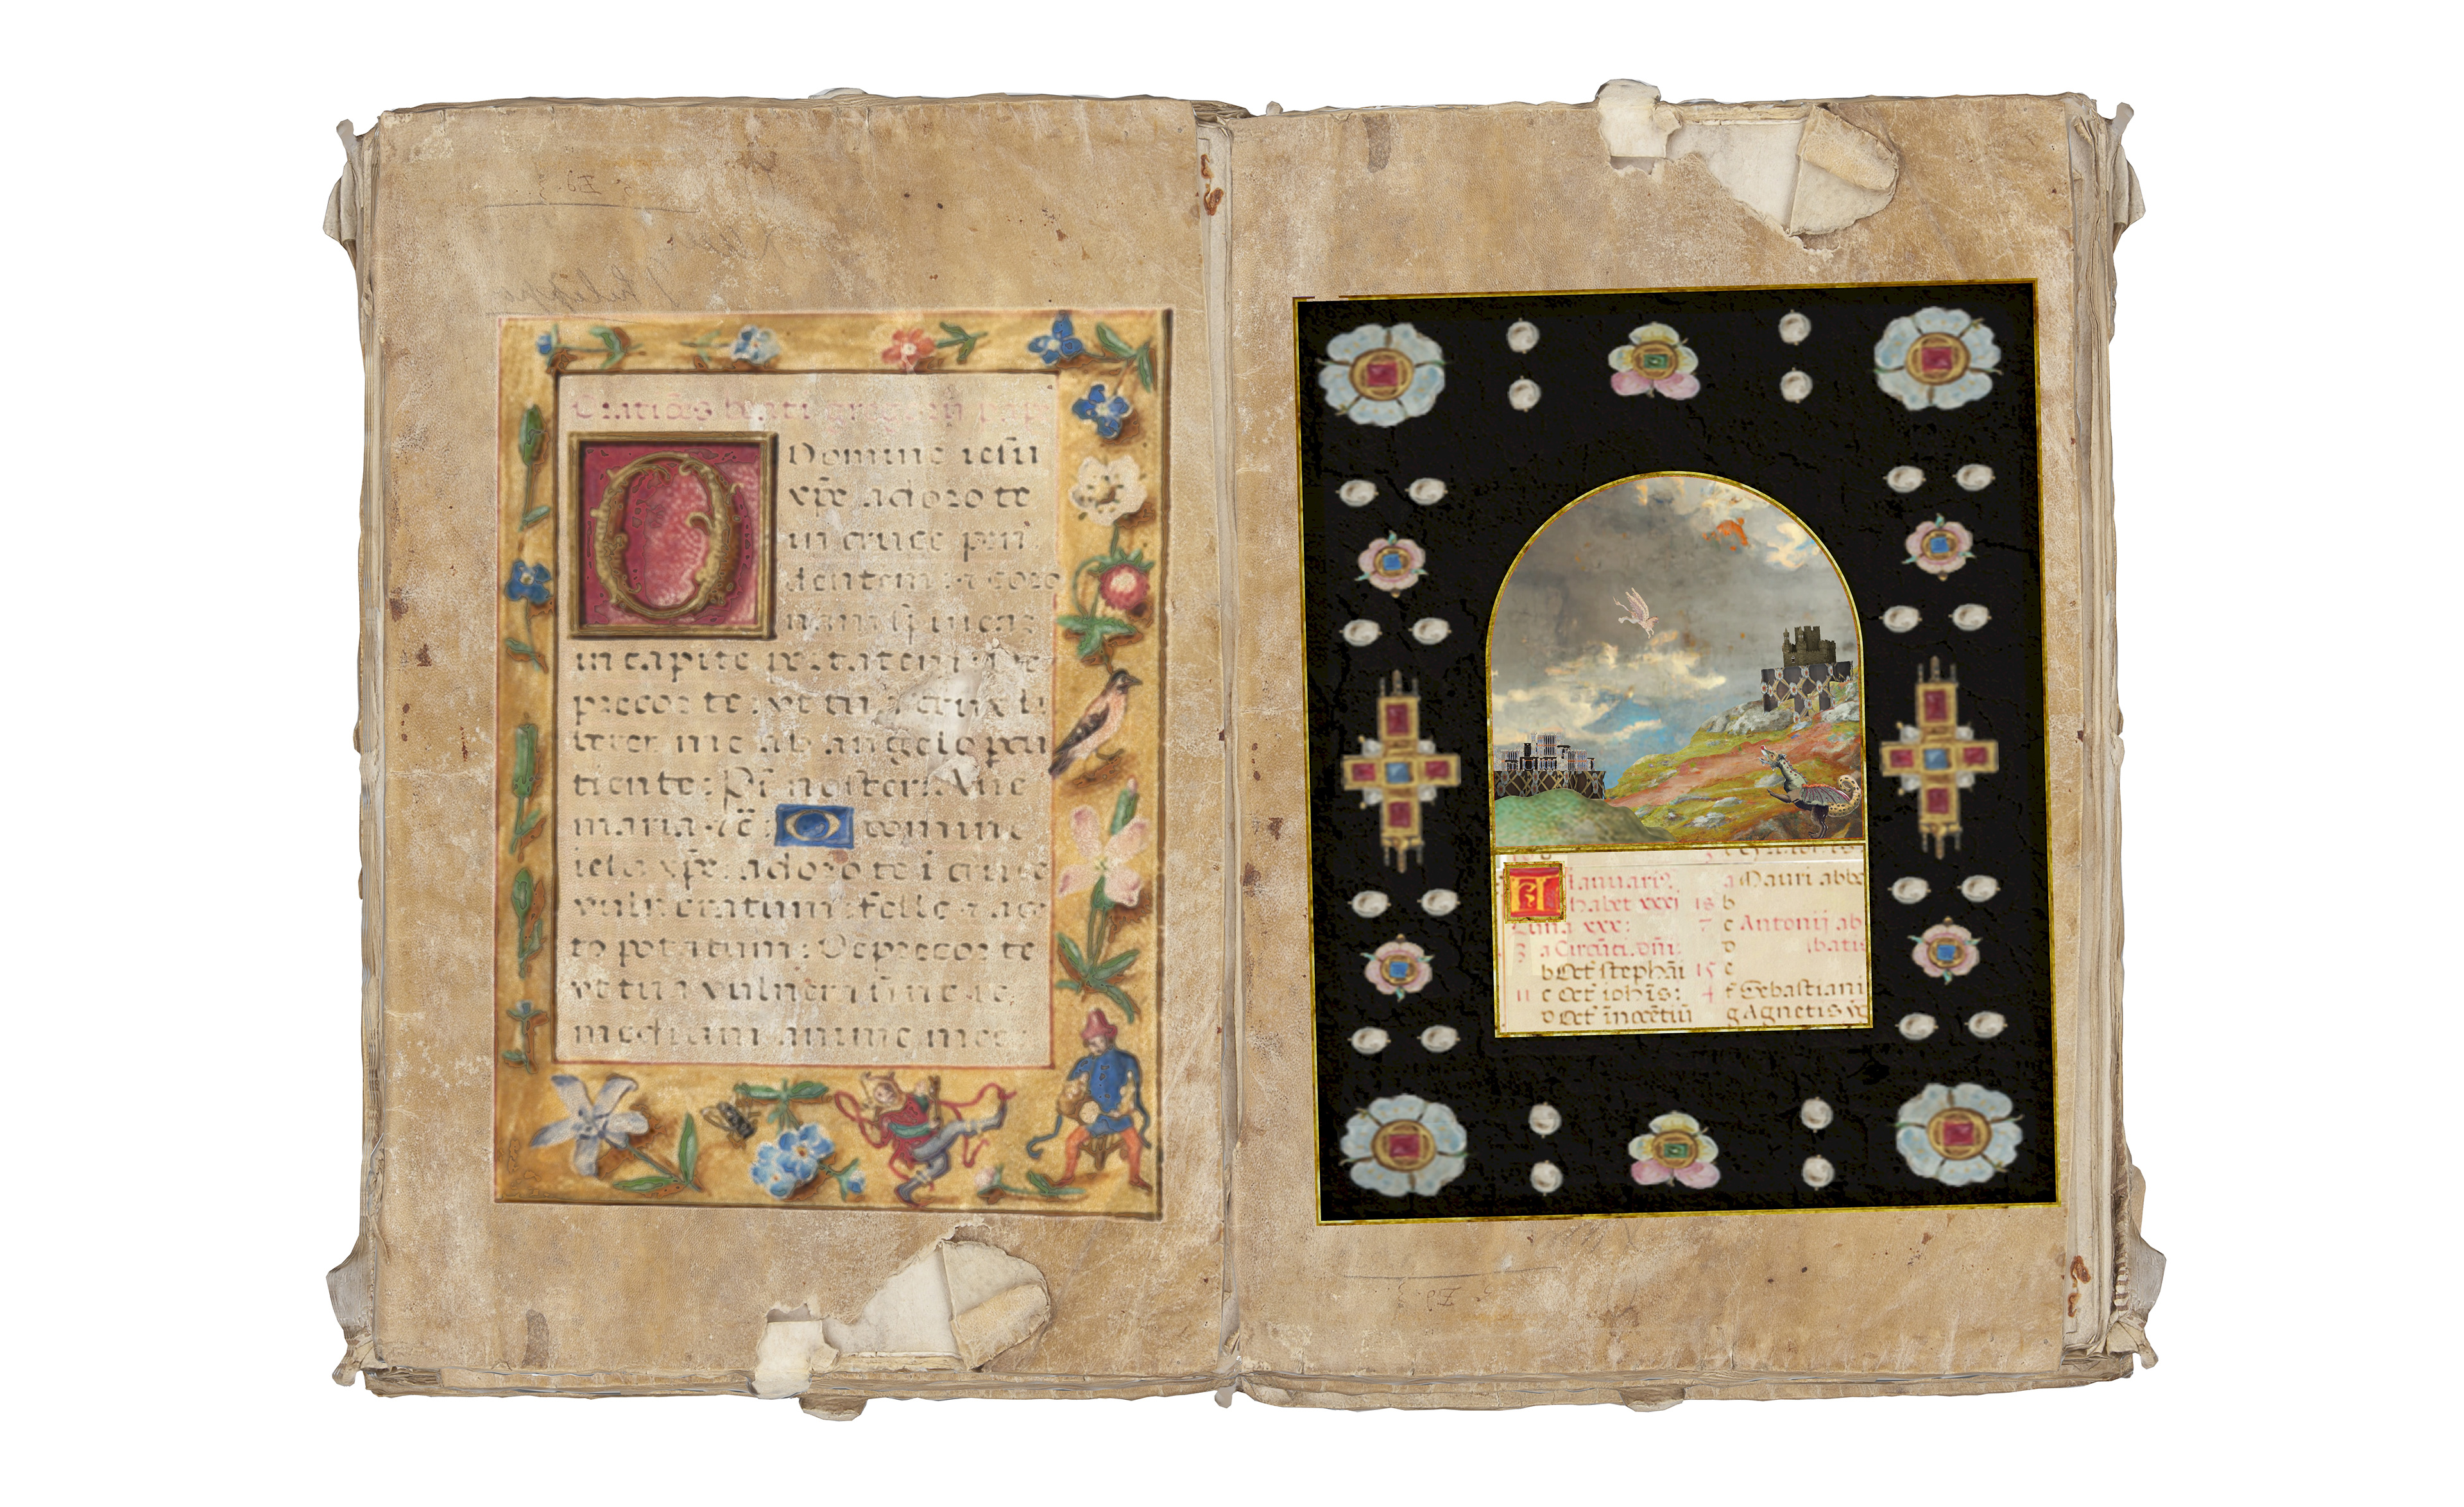 Oratiões beati gregorij pape
O Domine iesu
xp̄e adoro te
in cruce pen
dentem et coro
nam spineaz
in capite portatem: De
precor te: vt tua crux li
beret me ab angelo pcu
tiente: Pr̄ noster: Aue
maria: ⁊c̄: O domine
iesu xp̄e: adoro te i cruce
vulneratum: felle ⁊ ace
to potatum: Deprecor te
vt tua vulnera sint re
medium anime mee:
KL Ianuari⁹
habet xxxi
Luna xxx:
3 a Circūci. dn̄i:
b Oct̄ stephāi
11 c Oct̄ ioh̄is:
d Oct̄ īnocētiū
a Mauri abb
18 b
7 c Antonij ab
d batis
15 e
4 f Sebastiani
g Agnetis vg